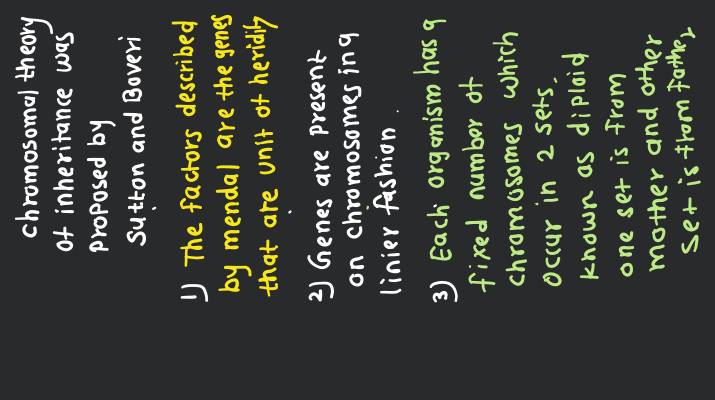 chromosomal theory
of inheritance was
proposed by
Sutton and Boveri
1) The factors described
by mendal are the genes
that are unit of heridity
2) Genes are present
on chromosomes in a
linier fashion.
3) Each organism has a
fixed number of
chromosomes which
occur in 2 sets.
known as diploid
one set is from
mother and other
set is from father